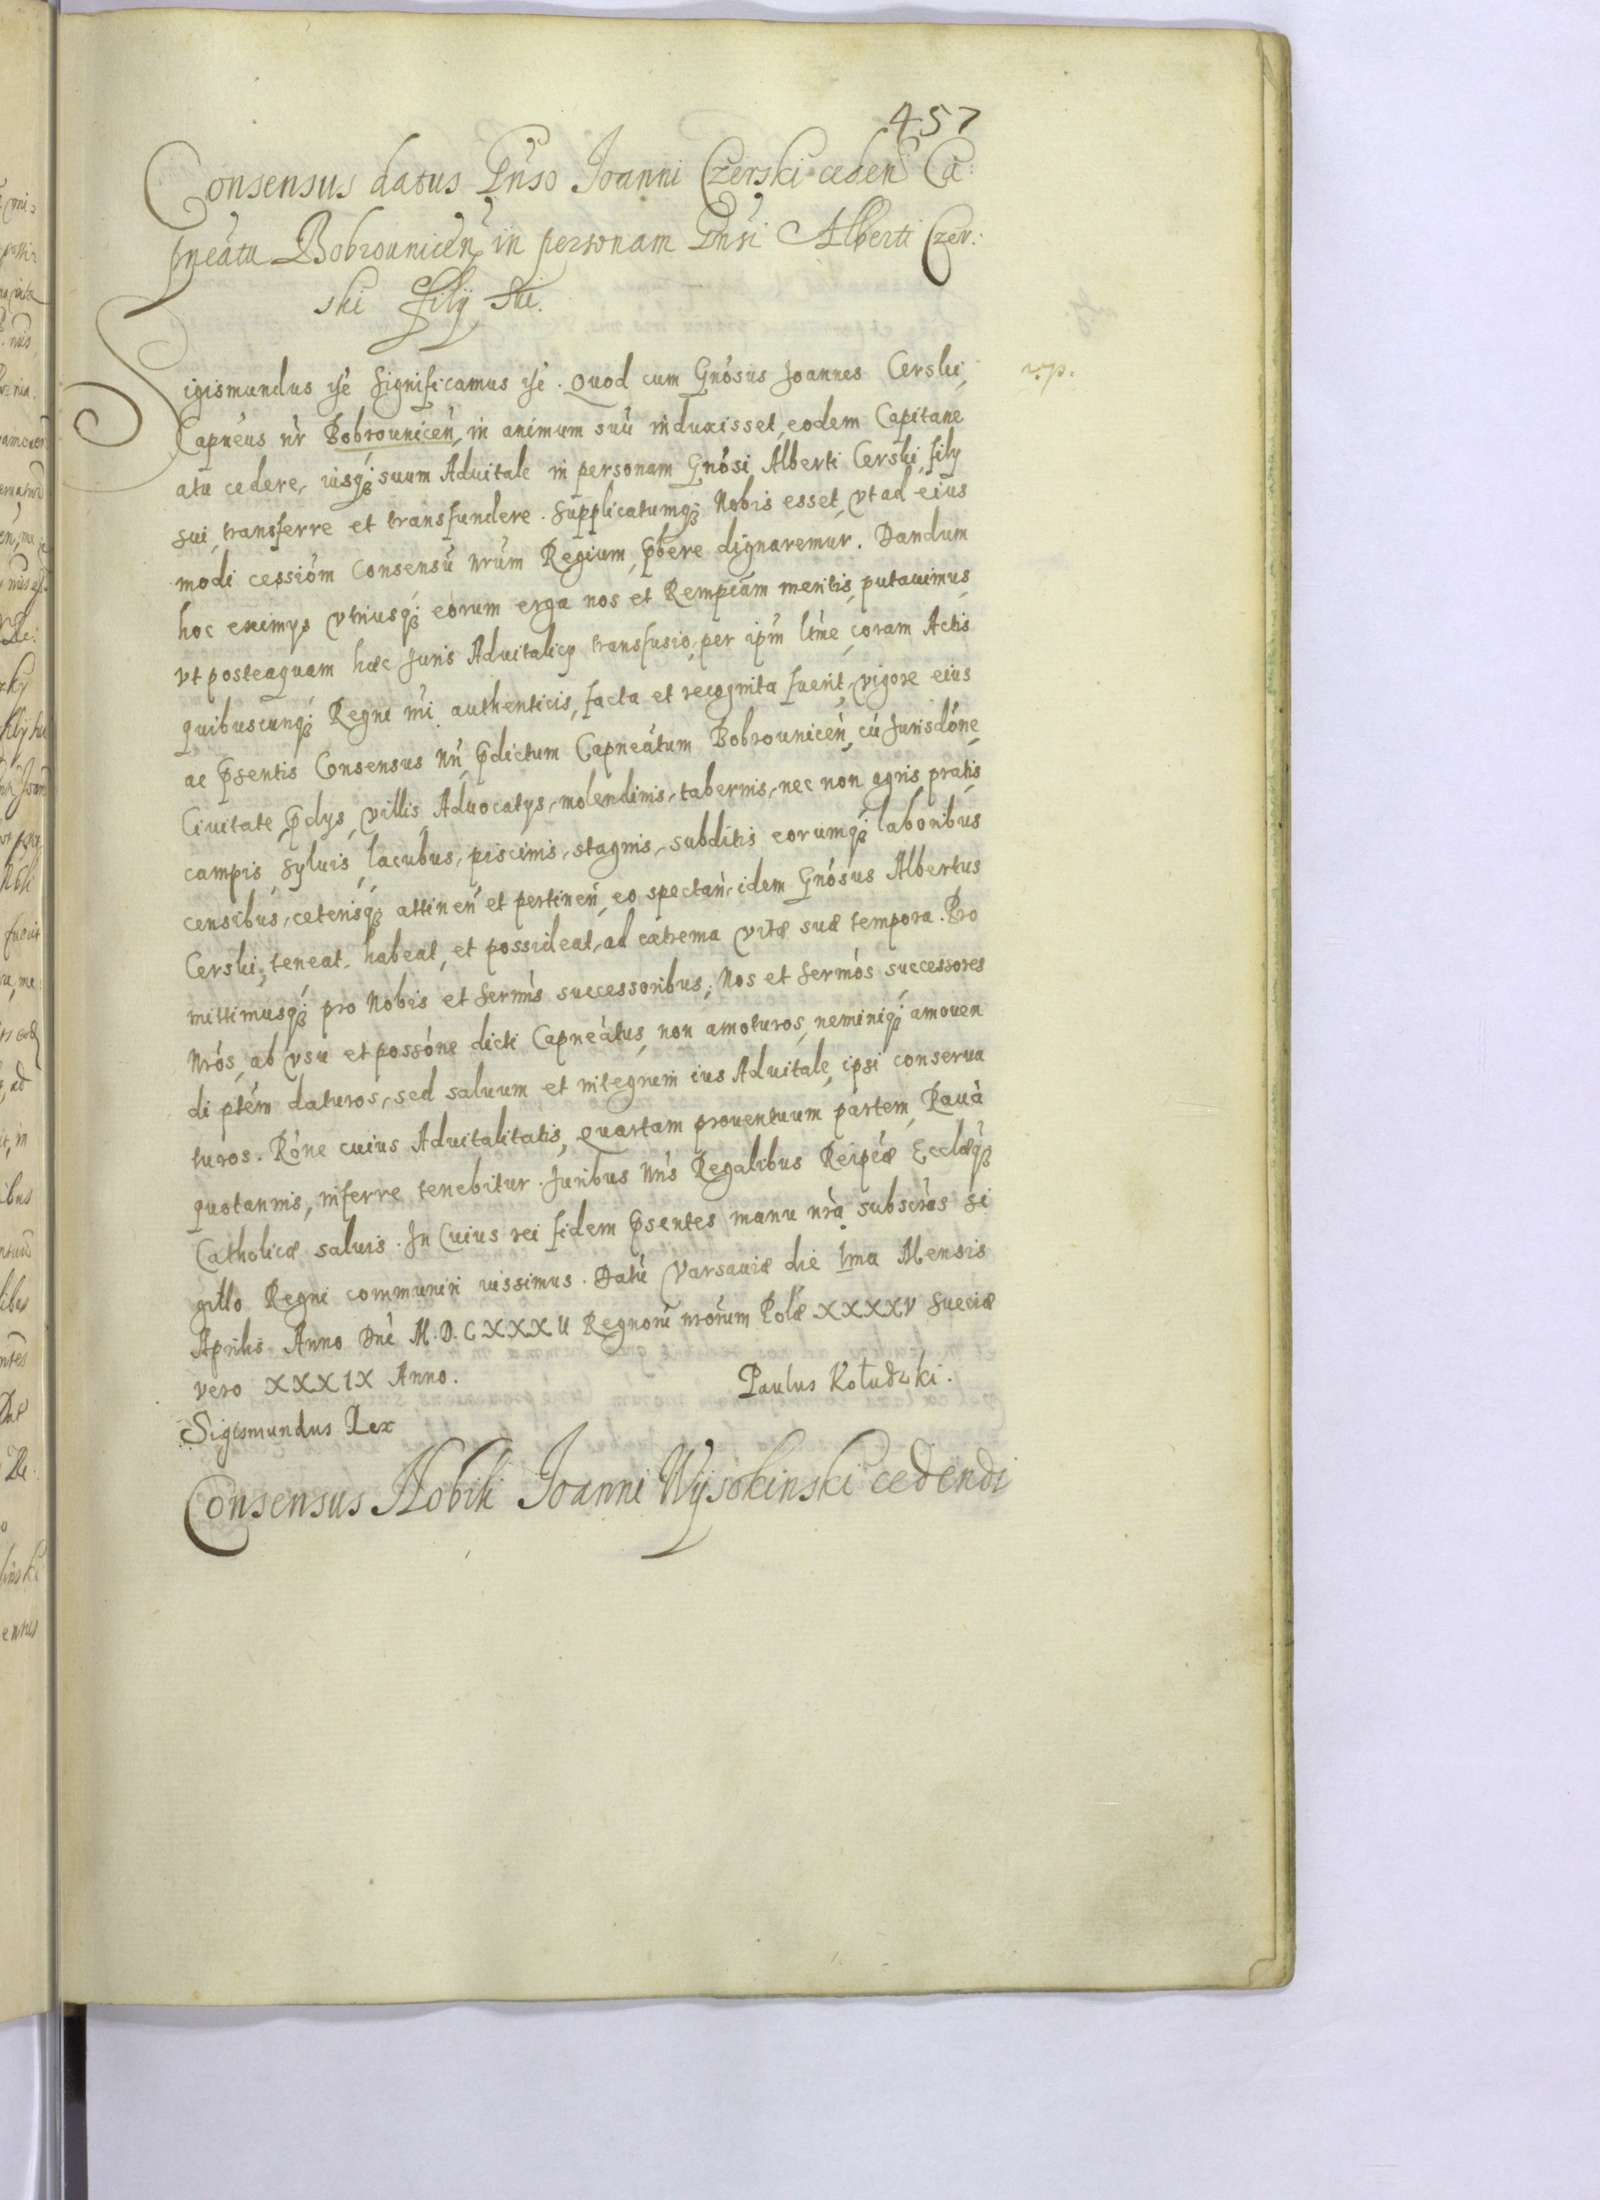 457
Consensus datus Gnso Joanni Czerski ceden Ca:
pneatu Bobrounicen in personam Gnsi Alberti Czer:
ski filij sui.
Sigismundus etc Significamus etc. Quod cum Gnosus Joannes Cerski,
Capneus nr Bobrounicen, in animum suu induxisset, eodem Capitane
atu cedere, iusq; suum Aduitale in personam Gnosi Alberti Cerski filij
sui, transferre et transfundere. Supplicatumq; Nobis esset, vt ad eius
modi cessiom Consensu nrum Regium, pbere dignaremur. Dandum
hoc eximijs vtriusq; eorum erga nos et Rempcam meritis, putauimus,
vt posteaquam hæc Juris Aduitalicij transfusio, per ipm ltme, coram Actis
quibuscunq; Regni nri authenticis, facta et recognita fuerit, vigore eius
ac psentis Consensus nri, pdictum Capneatum Bobrounicen, cu Jurisdone,
Ciuitate, pdijs, villis Aduocatijs, molendinis, tabernis, nec non agris, pratis,
campis, syluis, lacubus, piscinis, stagnis, subditis eorumq; laboribus
censibus, ceterisq; attinen et pertinen, eo spectan, idem Gnosus Albertus
Cerski, teneat, habeat, et possideat, ad extrema vitæ suæ tempora. Pro
mittimusq; pro Nobis et Sermis successoribus, Nos et Sermos successores
Nros, ab vsu et possone dicti Capneatus, non amoturos, neminiq; amouen
di ptem daturos, sed saluum et integrum ius Aduitale, ipsi conserua
turos. Rone cuius Aduitalitatis, quartam prouentuum partem, Raua
quotannis, inferre tenebitur. Juribus Nris Regalibus Reipcæ Ecclæq;
Catholicæ saluis. In Cuius rei fidem psentes manu nra subscras si
gillo Regni communiri iussimus. Datu Varsauiæ die Ima Mensis
Aprilis Anno Dni M.D.CXXXII Regnoru nrorum Polæ XXXXV Sueciæ
vero XXXIX Anno.
Paulus Kołudzki.
Sigismundus Rex
Consensus Nobili Joanni Wysokinski cedendi